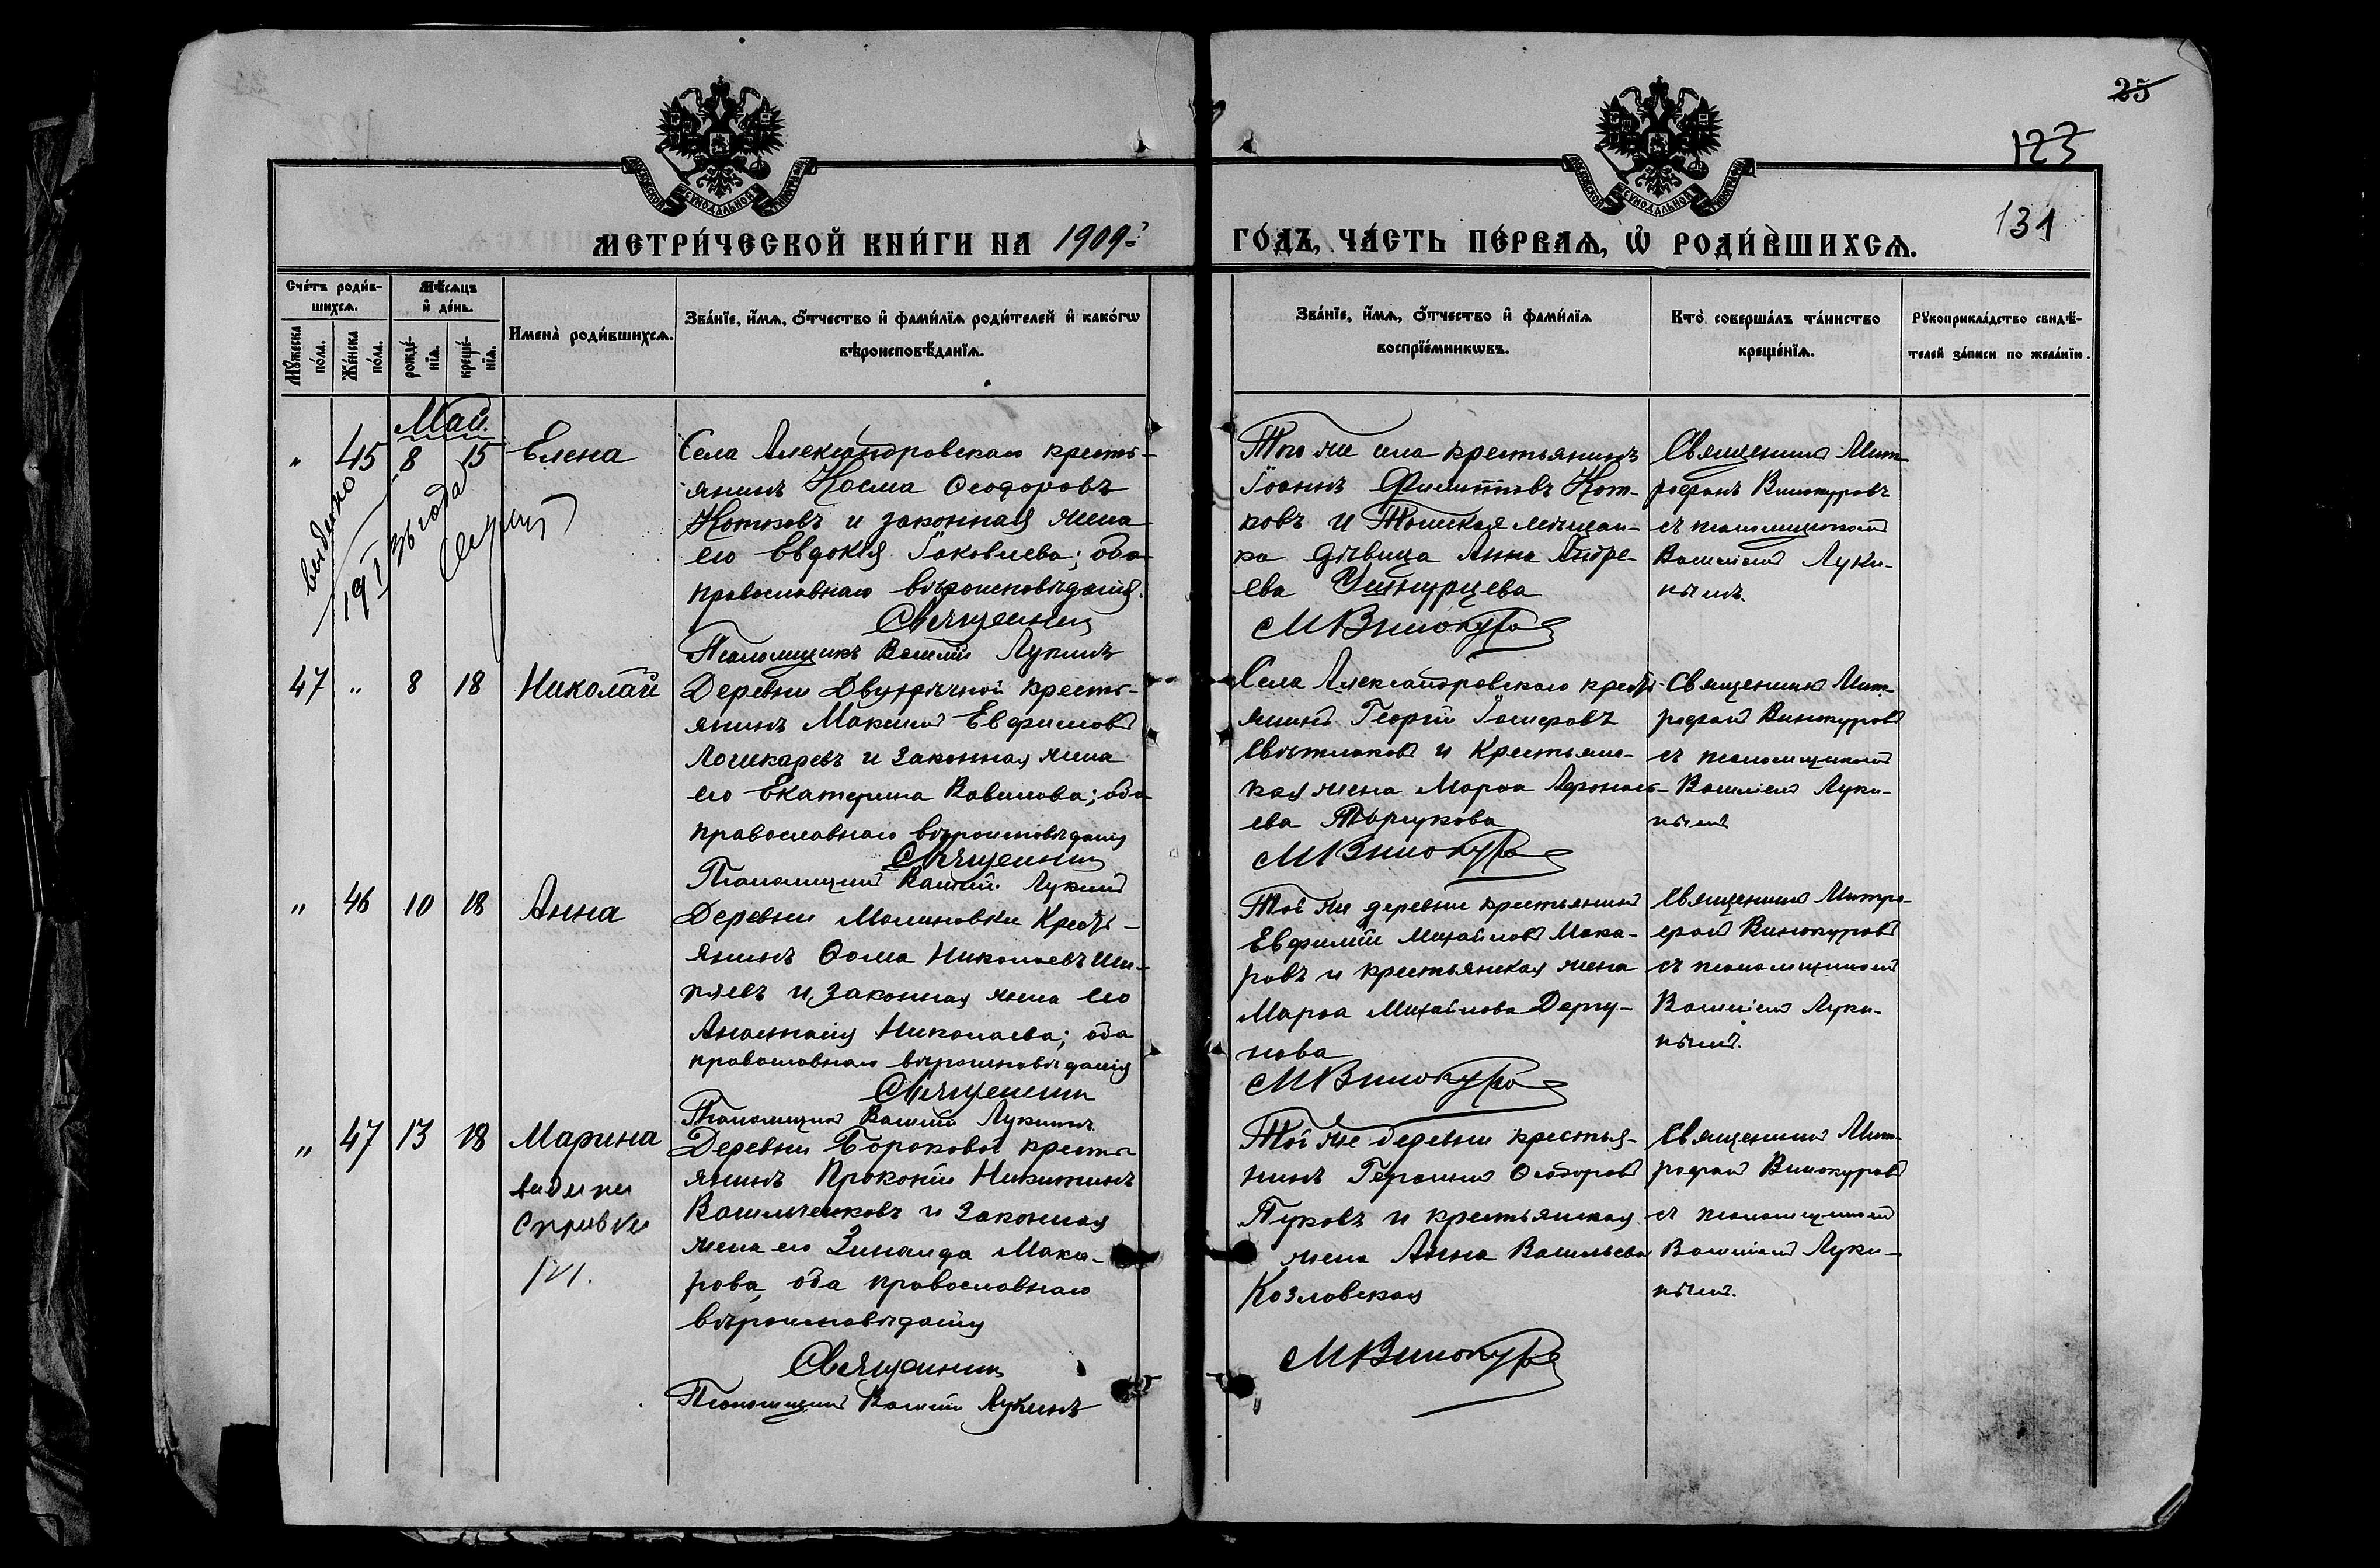 25
123
131
МОСКОВСКОЙ СУНОДАЛЬНОЙ ТИПОГРАФІИ
МОСКОВСКОЙ СУНОДАЛЬНОЙ ТИПОГРАФІИ
МЕТРИ́ЧЕСКОЙ КНИ́ГИ НА 1909-й
ГО́ДЪ, ЧА́СТЬ ПЕ́РВАѦ, Ѽ РОДИ́ВШИХСѦ.
Сче́тъ роди́в-
шихсѧ.
Мꙋ́жеска по́ла.
Же́нска по́ла.
Мѣ́сѧцъ
и҆ де́нь.
рожде́-
нїѧ.
креще́-
нїѧ.
Имена̀ роди́вшихсѧ.
Зва́нїе, и҆́мѧ, ѻ҆́тчество и҆ фами́лїѧ роди́телей и҆ како́гѡ
вѣроисповѣ́данїѧ.
Зва́нїе, и҆́мѧ, ѻ҆́тчество и҆ фами́лїѧ
воспрїе́мникѡвъ.
Кто̀ соверша́лъ та́инство
креще́нїѧ.
Рꙋкоприкла́дство свидѣ́-
телей за́писи по жела́нїю.
Май.
" 45 8 15 Елена
выдано
19 I 36 года
Села Александровскаго кресть-
янинъ Косма Ѳеодоровъ
Котковъ и законная жена
его Евдокія Іаковлева; оба
православнаго вѣроисповѣданія.
Священникъ
Псаломщикъ Василій Лукинъ
Того же села крестьянинъ
Іоаннъ Филипповъ Кот-
ковъ и Томская мѣщан-
ка дѣвица Анна Андре-
ева
М Винокуровъ
Священникъ Мит-
рофанъ Винокуровъ
съ псаломщикомъ
Василіемъ Луки-
нымъ.
47 " 8 18 Николай
Деревни Двурѣчной кресть-
янинъ Максимъ Евфимовъ
Лошкаревъ и законная жена
его Екатерина Вавилова; оба
православнаго вѣроисповѣданія
Священникъ
Псаломщикъ Василій Лукинъ
Села Александровскаго кресть-
янинъ Георгій Іосифовъ
Свѣтлаковъ и крестьянс-
кая жена Марѳа Афонась-
ева
М Винокуровъ
Священникъ Мит-
рофанъ Винокуровъ
съ псаломщикомъ
Василіемъ Луки-
нымъ
" 46 10 18 Анна
Деревни Малиновки кресть-
янинъ Ѳома Николаевъ Ши-
ряевъ и законная жена его
Анастасія Николаева; оба
православнаго вѣроисповѣданія
Священникъ
Псаломщикъ Василій Лукинъ
Той же деревни крестьянинъ
Евфимій Михайловъ Мака-
ровъ и крестьянская жена
Марѳа Михайлова Дергу-
нова
М Винокуровъ
Священникъ Митро-
фанъ Винокуровъ
съ псаломщикомъ
Василіемъ Луки-
нымъ.
" 47 13 18 Марина
справки
Деревни Бороковой кресть-
янинъ Прокопій Никитинъ
Васильченковъ и законная
жена его Зинаида Мака-
рова, оба православнаго
вѣроисповѣданія
Священникъ
Псаломщикъ Василій Лукинъ
Той же деревни крестья-
нинъ Герасимъ Ѳеодоровъ
Пуковъ и крестьянская
жена Анна Васильева
Козловская
М Винокуровъ
Священникъ Мит-
рофанъ Винокуровъ
съ псаломщикомъ
Василіемъ Луки-
нымъ.